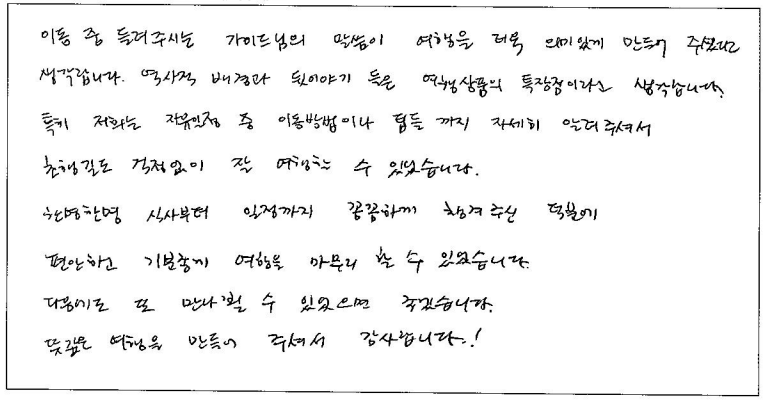 이동 중 들려주시는 가이드님의 말씀이 여행을 더욱 의미있게 만들어 주셨다고
생각합니다. 역사적 배경과 뒷이야기 등은 여행상품의 특장점이라고 생각합니다.
특히 저희는 자유일정 중 이동방법이나 팁들 까지 자세히 알려주셔서
초행길도 걱정없이 잘 여행할 수 있었습니다.
한명한명 식사부터 일정까지 꼼꼼하게 챙겨주신 덕분에
편안하고 기분좋게 여행을 마무리 할 수 있었습니다.
다음에도 또 만나뵐 수 있었으면 좋겠습니다.
뜻깊은 여행을 만들어 주셔서 감사합니다.!